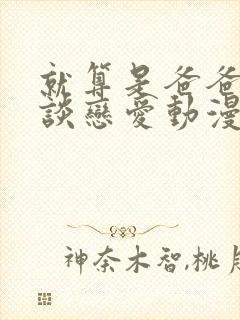 就算是爸爸
談戀愛動漫
神奈木智,桃月